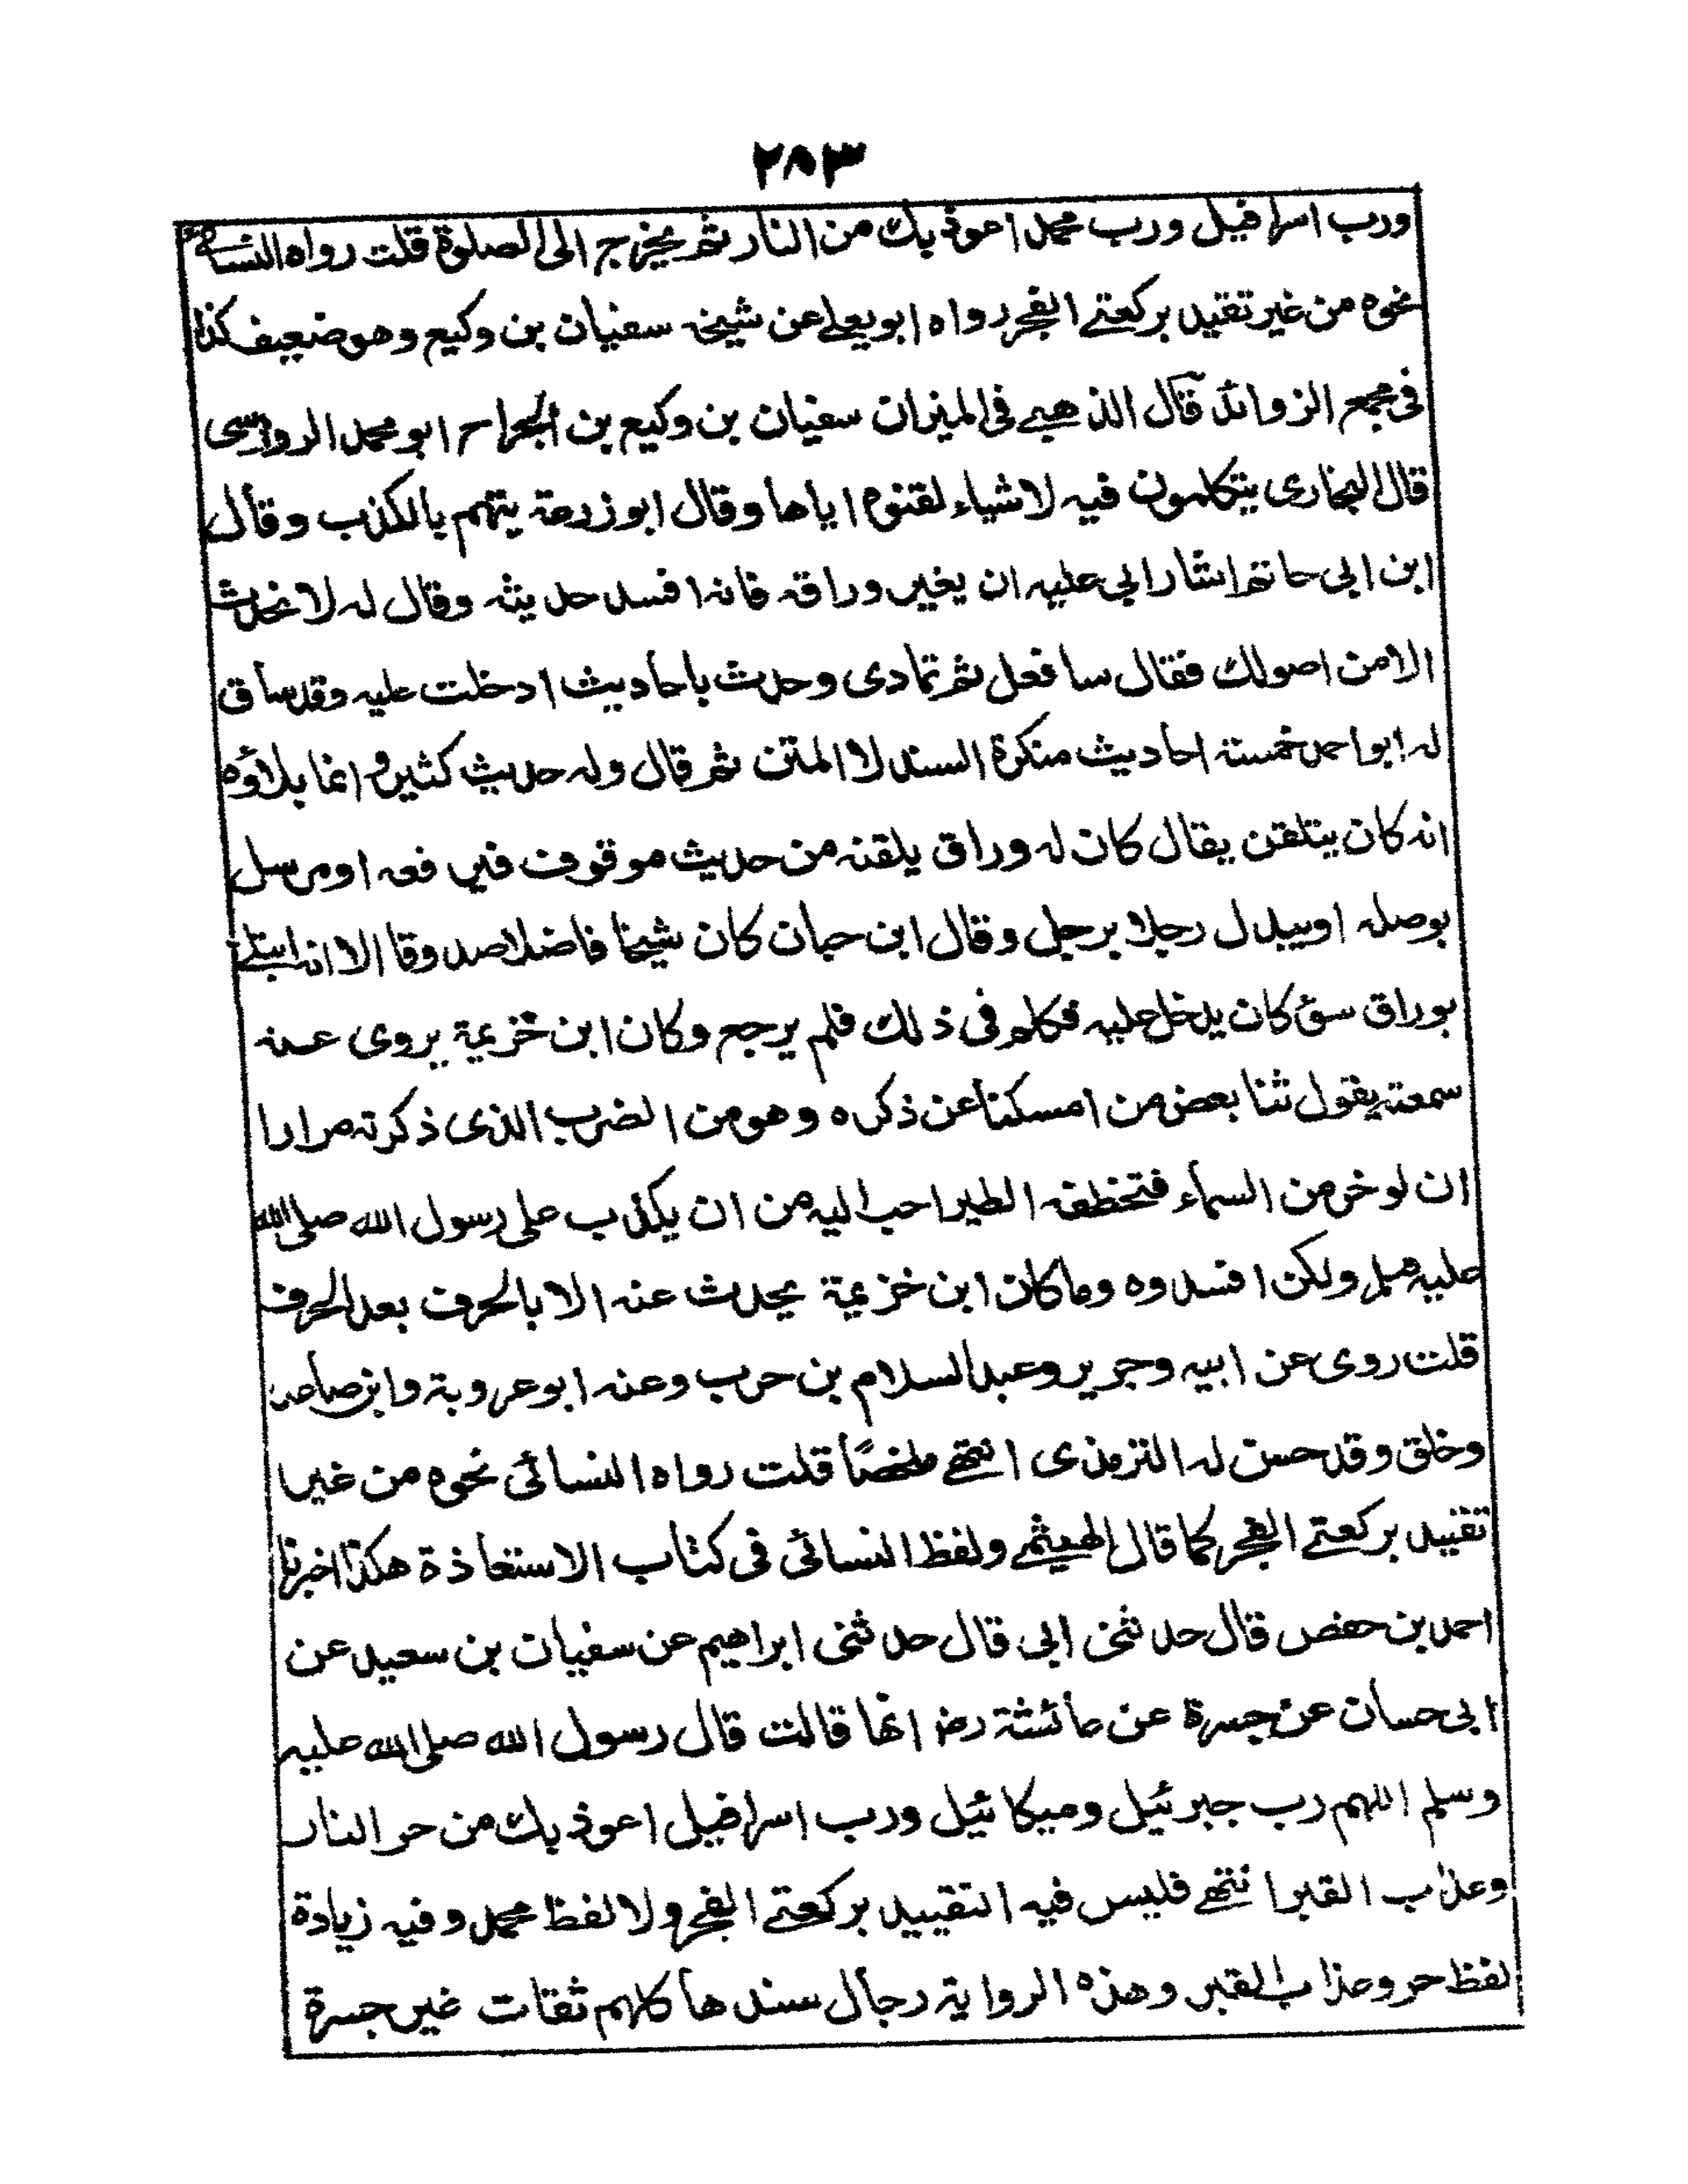 ٢٨٣
ورب اسرافيل ورب محمد اعوذ بك من النار ثم يخرج الى الصلوة قلت رواه النسائى
نحوه من غير تقيد بركعتے الفجر رواه ابو يعلے عن شيخہ سفيان بن وكيع وهو ضعيف كذا
فى مجمع الزوائد قال الذهبے فى الميزان سفيان بن وكيع بن الجراح ابو محمد الرواسى
قال البخارى يتكلمون فيہ لاشياء لقنوه اياها وقال ابو زرعة يتهم بالكذب وقال
ابن ابى حاتم اشار ابى عليہ ان يغير وراقہ فانہ افسد حديثہ وقال لہ لا تحدث
الا من اصولك فقال سافعل ثم تمادى وحدث باحاديث ادخلت عليہ وقد ساق
لہ ابو احمد خمستہ احاديث منكرة السند لا المتن ثم قال ولہ حديث كثير و انما بلاؤه
انہ كان يتلقن يقال كان لہ وراق يلقنہ من حديث موقوف فير فعہ او مرسل
يوصلہ او يبدل رجلا برجل وقال ابن حبان كان شيخا فاضلا صدوقا الا انہ ابتلے
بوراق سوء كان يدخل عليہ فكلم فى ذلك فلم يرجع وكان ابن خزيمة يروى عنہ
سمعتہ يقول ثنا بعض من امسكنا عن ذكره وهو من الضرب الذى ذكرتہ مرارا
ان لو خر من السماء فتخطفہ الطير احب اليہ من ان يكذب على رسول الله صلى الله
عليہ وسلم ولكن افسدوه وما كان ابن خزيمة يحدث عنہ الا بالحرف بعد الحرف
قلت روى عن ابيہ وجرير وعبد السلام بن حرب وعنہ ابو عروبة وابن صاعد
وخلق وقد حسن لہ الترمذى انتهے ملخصًا قلت رواه النسائى نحوه من غير
تقييد بركعتے الفجر كما قال الهيثمے ولفظ النسائى فى كتاب الاستعاذة هكذا اخبرنا
احمد بن حفص قال حدثنى ابى قال حدثنى ابراهيم عن سفيان بن سعيد عن
ابى حسان عن جسرة عن عائشة رض انها قالت قال رسول الله صلى الله عليہ
وسلم اللهم رب جبرئيل وميكائيل ورب اسرافيل اعوذ بك من حر النار
وعذاب القبر انتهے فليس فيہ التقييد بركعتے الفجر ولا لفظ محمد وفيہ زيادة
لفظ حر وعذاب القبر وهذه الرواية رجال سندها كلهم ثقات غير جسرة